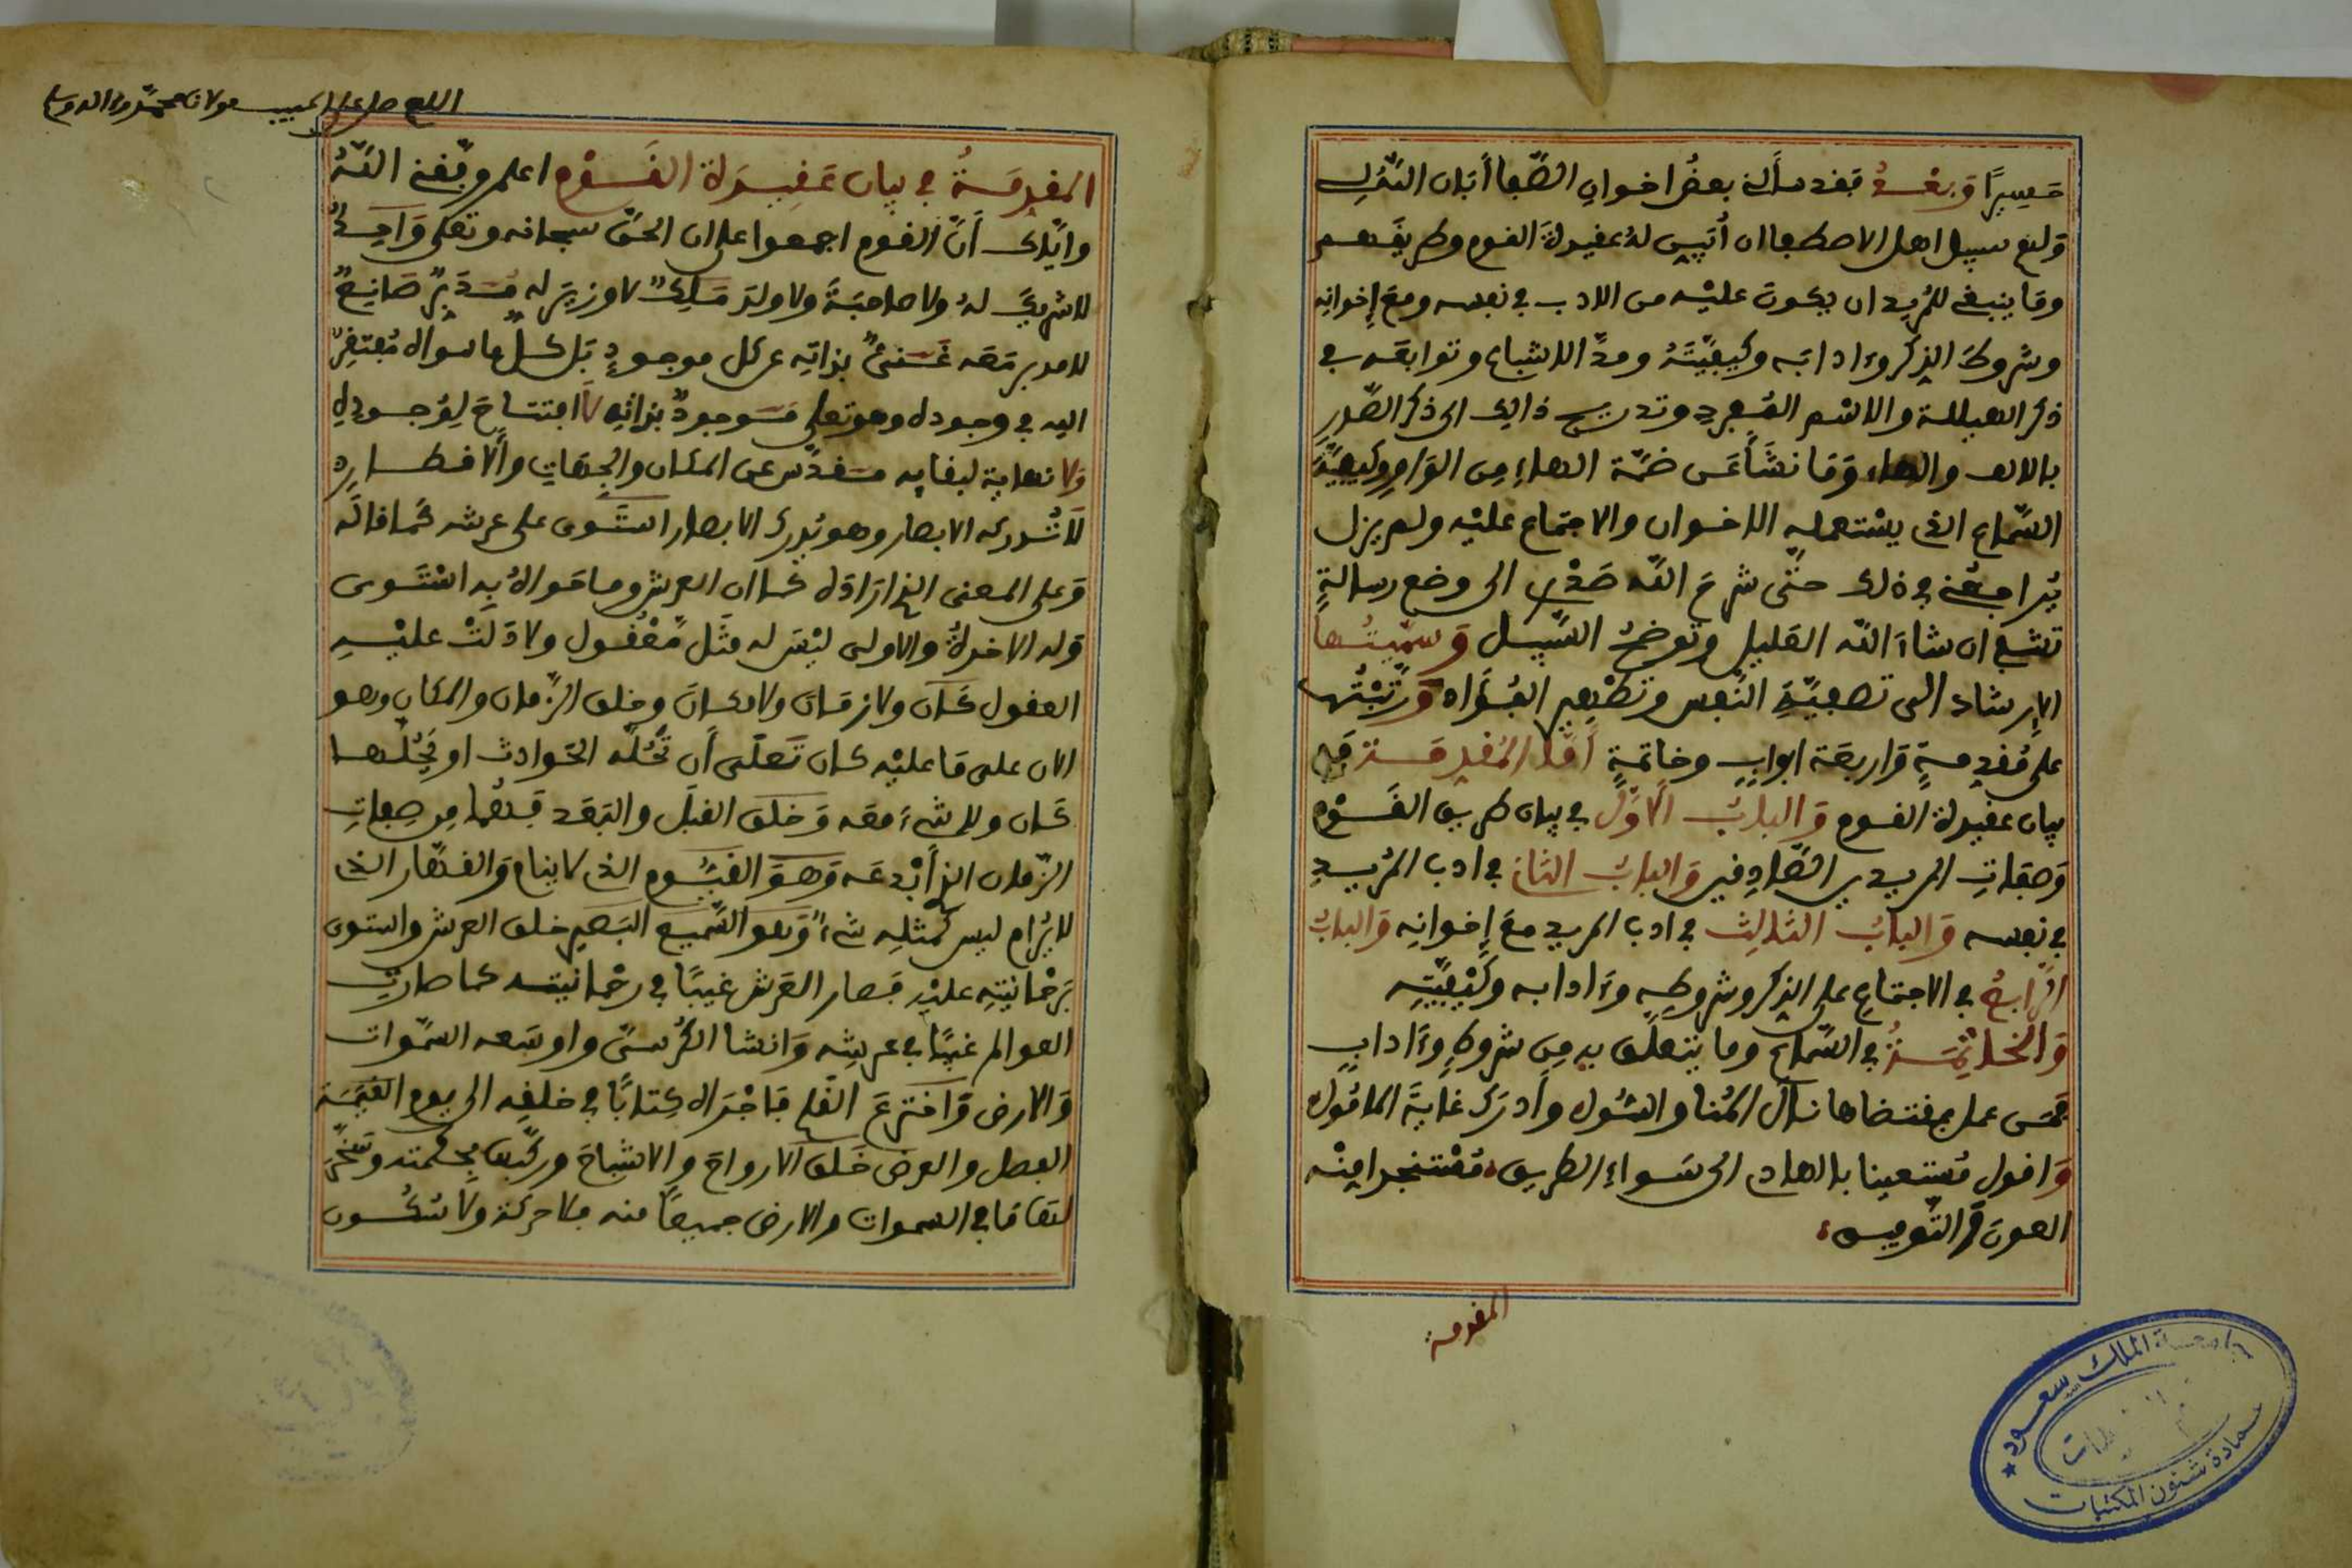 مسيرًا وَبعْدُ فقد سألني بعضُ اخوانِ الصَّفا أبدان التنزل
وَلنعْ سبيل اهل الاصطفا ان أُبَيِّن لهُ عقيدةَ القوم وطريقَهم
وما ينبغي للمُريد ان يكونَ عليْه من الادب في نفسه ومعَ إخوانِه
وشروطَ الذِكر وءادابَه وكيفيَّتَهُ ومدَّ الاشباع وتوابعَه في
ذكر الهيللة والاسْم المُفرد وتدريج ذالك الى ذكر الصَّدرِ
بالالف والهاء وَما نشَأَ عَن ضمّة الهاءِ مِن الوَاوِ وكيفيّةَ
السَّماعِ الذى يسْتعمله الاخوان والاجتماع عليْه ولم يزل
يُراجعُني في ذلك حتَّى شرحَ اللّه صَدْرِى الى وضع رسالةٍ
تشفى ان شاءَ اللّه الغليل وتوضحُ السَّبيل وَسمَّيتُها
الإرشاد الى تصفيَةِ النَّفس وتطْهير الفُؤَاد وَرَتَّبْتُها
على مُقدِّمةٍ وَاربعَة ابوابٍ وخاتمةٍ أمَّا المُقدِّمة فَفى
بيان عقيدة القوم وَالبابُ الأوّل في بيان طريق القَوْمِ
وَصفاتِ المريدين الصَّادِقين وَالبابُ الثانى في ادب المُريدِ
في نفسه وَالبابُ الثالِث في ادب المريد معَ إخوانِه وَالبابُ
الرَّابعُ في الاجتماع على الذِكر وشروطِه وءَادابه وكَيْفيَّتِه
وَالخاتِمَةُ في السَّماع وما يتعلّق به مِن شروطٍ وءَادابٍ
فمَن عمل بمقتضاها نالَ المُنا والسُّول وأدرَكَ غايَةَ المامُول
وَاقول مُستعينا بالهادى الى سَواءِ الطريق مُسْتنجدا مِنْه
العونَ وَالتَّوفيق
المقدمة
اللهم صل على الحبيب مولانا محمّد
المقدِمَةُ في بيان عَقيدَة القَوْمِ اعلم وفّقني اللّهُ
وايّاك أنَّ القوم اجمعوا على ان الحَقّ سبحانه وتعلى وَاحِدٌ
لا شريكَ لهُ ولا صاحبَةَ ولا ولَد مَلِكٌ لا وزيرَ له مُدَبِّرٌ صَانِعٌ
لا مدبر مَعَه غَنىٌّ بذاتِه عن كل موجودٍ بَل كلّ ما سواه مُفتقِرٌ
اليه في وجوده وهو تعلى مَوجودٌ بذاتِه لا افتتاحَ لِوُجودِه
وَلا نهاية لبقايه مقدّس عن المكان والجِهاتِ والاقطارِ
لا تُدركه الابصار وهو يُدرك الابصار استَوى على عرشه كما قالَه
وَعلى المعنى الذى ارَادَه كما ان العرش وما حَواهُ بِه اسْتَوى
وَله الاخرةُ والاولى ليْسَ له مَثَل مَّعْقُول ولا دَلتْ عليْهِ
العقول كَان ولا زمَان ولا مكَان وخلق الزَّمان والمكان وهو
الان على مَا عليْه كان تَعَلَى أن تَحُلَّه الحَوادث او يَحُلَّها
كَان ولا شىءَ معَه وَخلقَ القبَل والبَعد فإنّهُما مِن صِفاتِ
الزَّمان الذى أبْدعَه وَهوَ القَيُّوم الذى لا ينام وَالقهَّار الذى
لا يُرام ليس كمثلِه شىءٌ وَهو السَّميع البَصير خلق العرش واستوى
بَرحمانيّتِه عليْه فصار العَرش غيبًا في رحْمانيَّته كما صارت
العوالم غيبًا في عرشِه وَانشا الكُرسىَّ واوسَعه السَّموات
وَالارض وَاخترعَ القلم فاجْرَاه كِتابًا في خلقِه الى يوم القيمَة
الفصل والعرض خَلق الارواحَ والاشباحَ وركَّبها بحكمته وسَخّر
لنا ما في السموات والارض جميعًا منه فلا حركة ولا سُكُون
جامعة الملك سعود
عمادة شئون المكتبات